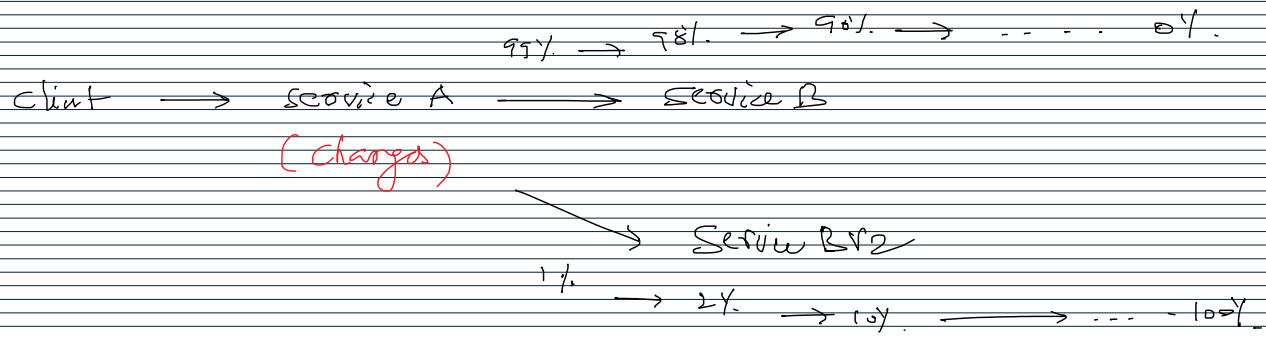 99% → 98% → 90% → - - - - - 0%.
Client → Service A → Service B
(Changes)
Service BV2
1% → 2% → 10% → - - - - 100%